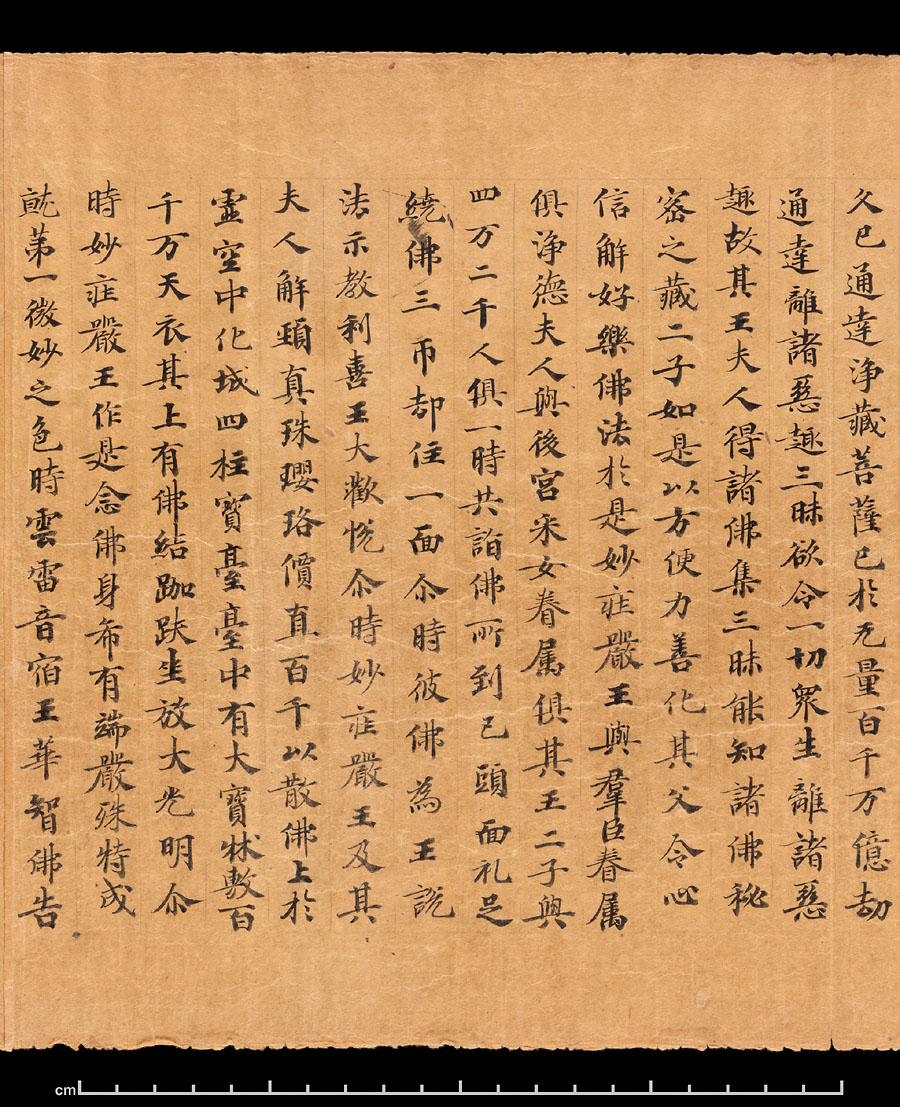 久已通達淨藏菩薩已於无量百千万億劫
通達離諸惡趣三昧欲令一切衆生離諸惡
趣故其王夫人得諸佛集三昧能知諸佛秘
密之藏二子如是以方便力善化其父令心
信解好樂佛法於是妙疘嚴王與羣臣眷属
俱淨德夫人與後宮采女眷属俱其王二子與
四万二千人俱一時共詣佛所到已頭面礼足
繞佛三帀却住一面尒時彼佛為王說
法示教利喜王大歡悅尒時妙疘嚴王及其
夫人解頚真珠瓔珞價直百千以散佛上於
虛空中化城四柱寶臺臺中有大寶牀敷百
千万天衣其上有佛結跏趺坐放大光明尒
時妙疘嚴王作是念佛身希有端嚴殊特成
就第一微妙之色時雲雷音宿王華智佛告
cm